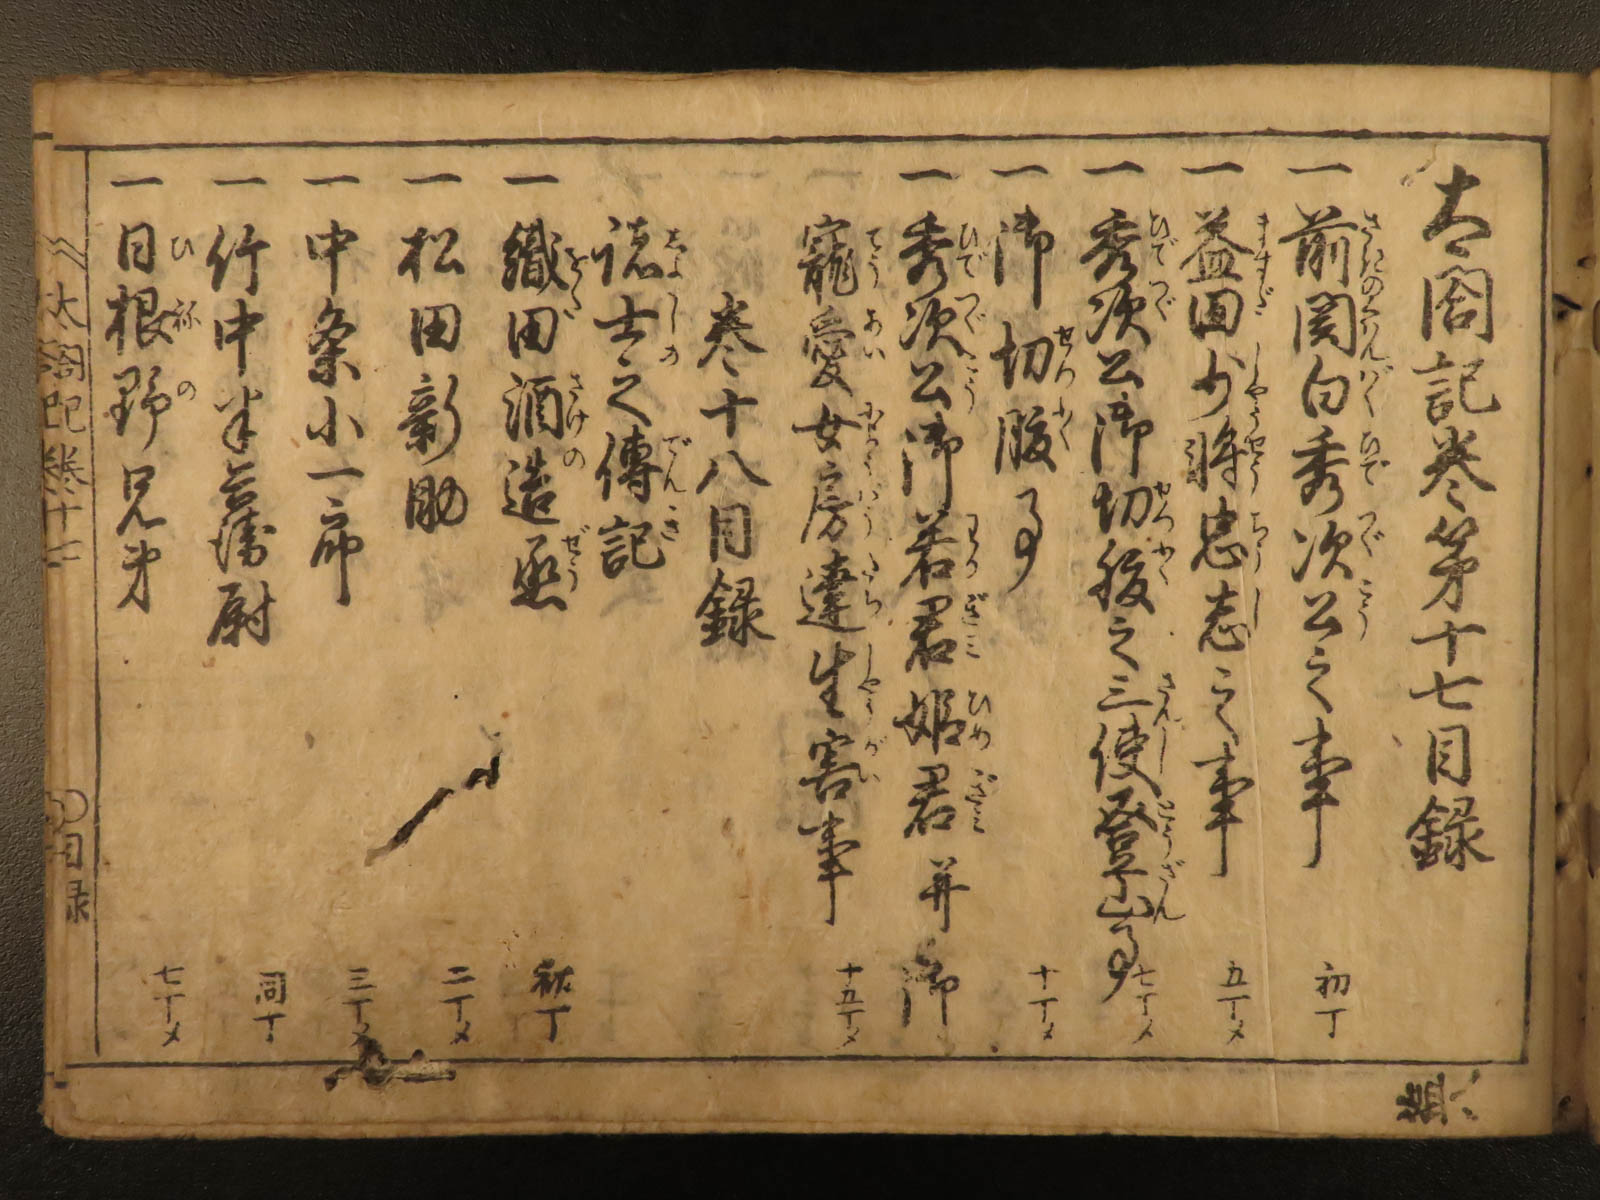 太閤記巻第十七目録
一 前関白秀次公之事 初丁
一 益田少将忠志之事 五丁メ
一 秀次公御切腹之三使登山事 七丁メ
一 御切腹事 十丁メ
一 秀次公御若君姫君并御
寵愛女房達生害事 十五丁メ
巻十八目録
諸士之傳記
一 織田酒造丞 初丁
一 松田新助 二丁メ
一 中条小一郎 三丁メ
一 竹中半兵衛尉 同丁
一 日根野兄弟 七丁メ
太閤記巻十七 ○目録